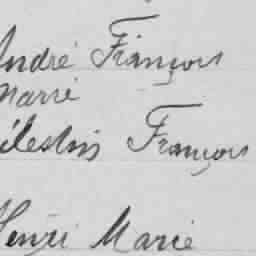 André François
Marie
Célestin François
Henri Marie